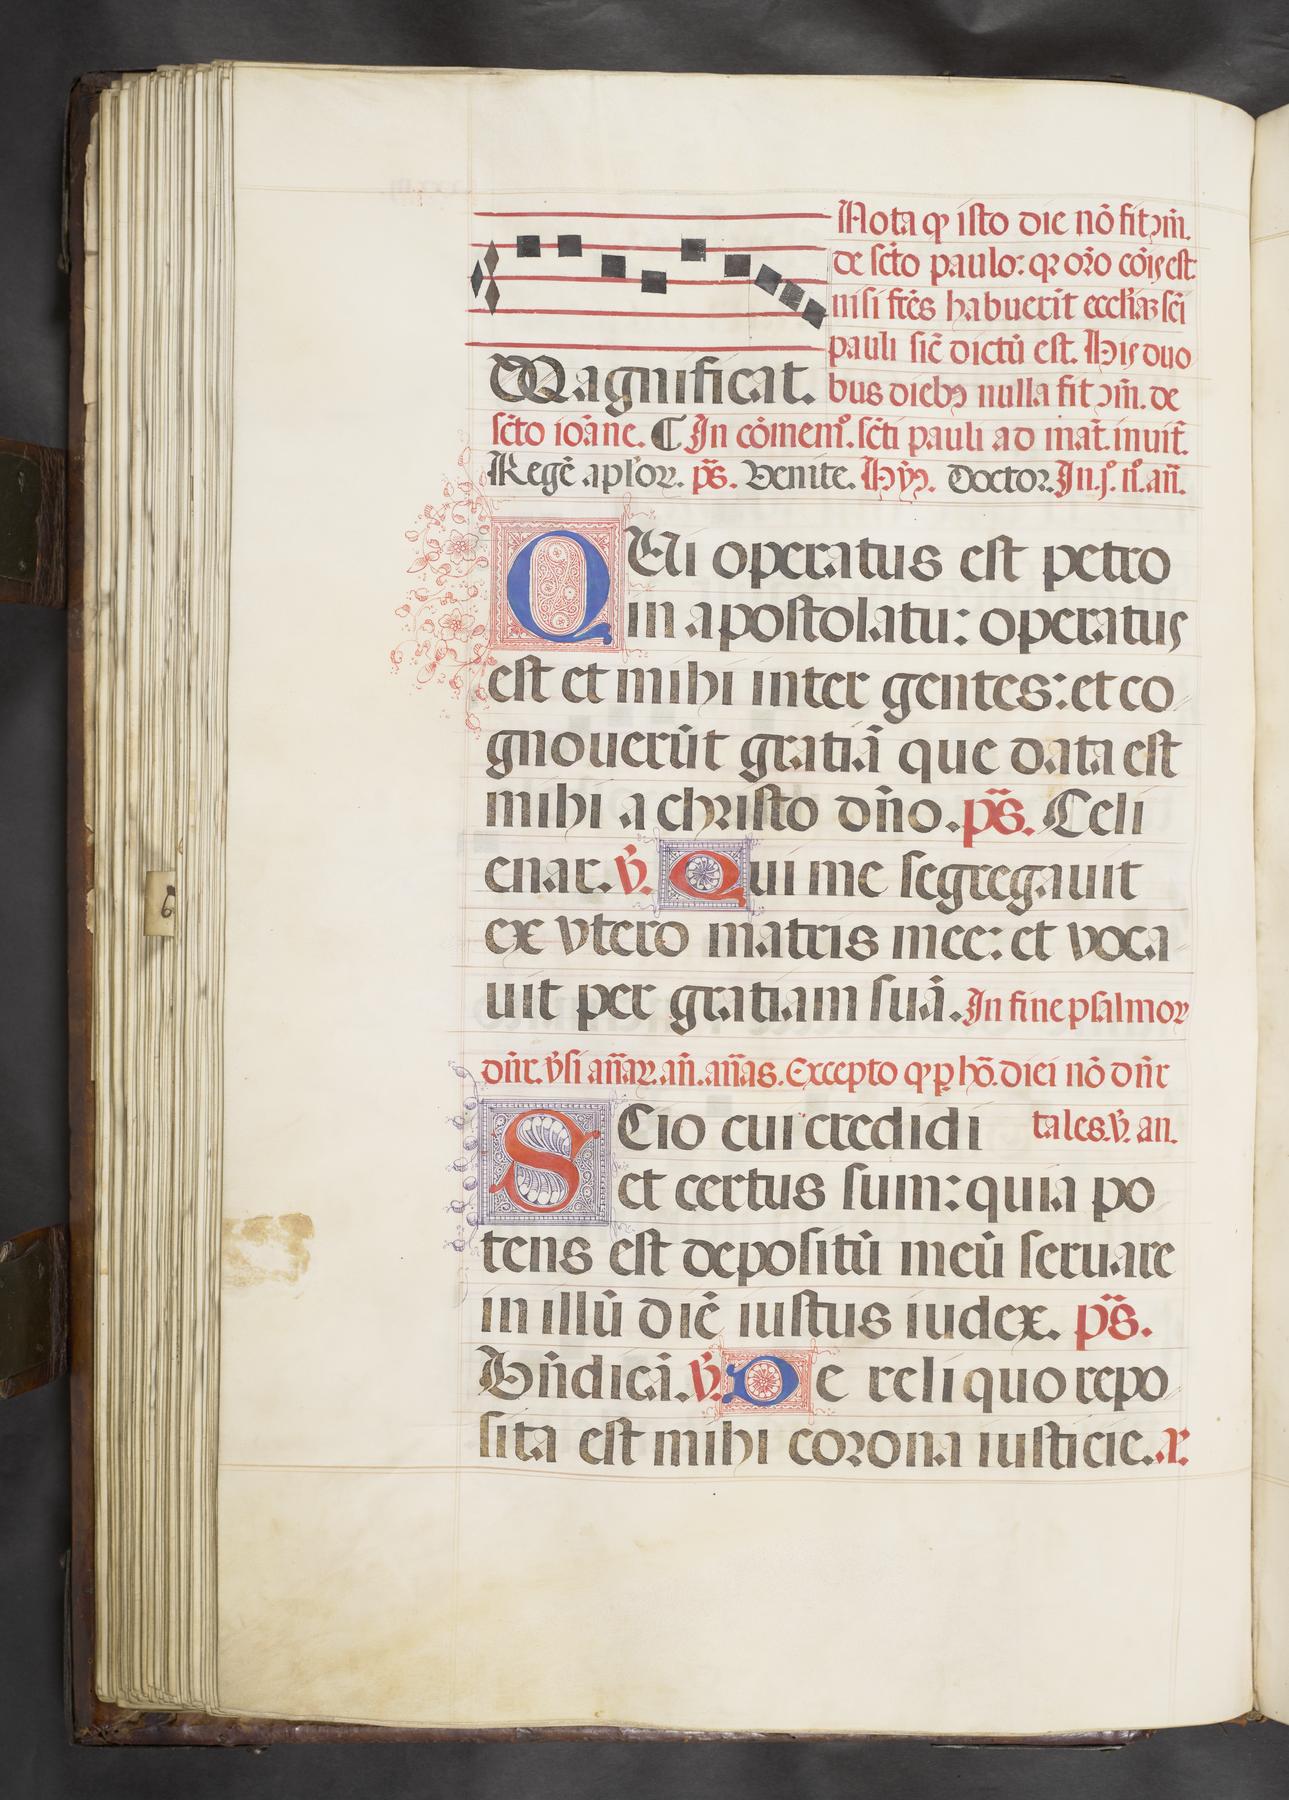 Nota ꝙ isto die nō fit ꝯm̄.
de sc̄to paulo: qꝛ or̄o cōis est
nisi fr̄es habuerīt eccl̄iaꝫ sc̄i
pauli sic̄ dictū est. His duo
Magnificat.
bus diebꝰ nulla fit ꝯm̄. de
sc̄to ioāne. ¶ In cōmem̄º. sc̄ti pauli ad mat̄. inuit̄.
Regē apl̓oꝝ. ps̄. Venite. Hȳꝰ. Doctor. In .j.º n̄. an̄.
QUi operatus est petro
in apostolatu: operatus
est et mihi inter gentes: et co
gnouerūt gratiā que data est
mihi a christo dn̄o. ps̄. Celi
enar. v̄. Qui me segregauit
ex vtero matris mee: et voca
uit per gratiam suā. In fine psalmoꝝ
dn̄r. v̄si an̄aꝝ. an̄. an̄as. Excepto ꝙ ꝑ hō. diei nō dn̄r
SCio cui credidi tales. v̄. an.
et certus sum: quia po
tens est depositū meū seruare
in illū diē iustus iudex. ps̄.
Bn̄dicā. v̄. De reliquo repo
sita est mihi corona iusticie. a.
6